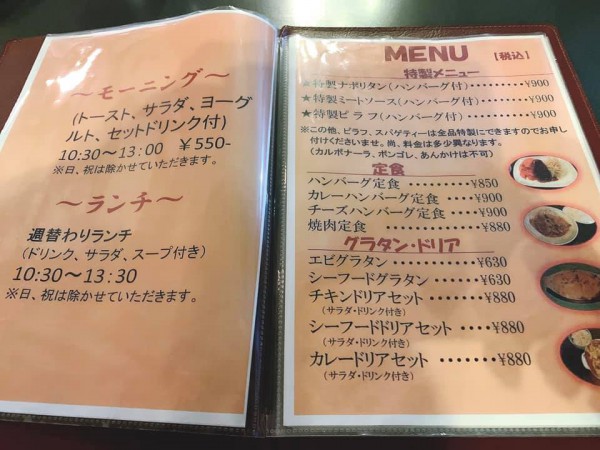 ～モーニング～
(トースト、サラダ、ヨーグ
ルト、セットドリンク付)
10:30～13:00 ￥550-
※日、祝は除かせていただきます。
～ランチ～
週替わりランチ
(ドリンク、サラダ、スープ付き)
10:30～13:30
※日、祝は除かせていただきます。
MENU [税込]
特製メニュー
★特製ナポリタン(ハンバーグ付)‥‥‥‥¥900
★特製ミートソース(ハンバーグ付)‥‥‥¥900
★特製ピラフ(ハンバーグ付)‥‥‥‥‥¥900
※この他、ピラフ、スパゲティーは全品特製にできますのでお申し
付けくださいませ。尚、料金は多少異なります。
(カルボナーラ、ボンゴレ、あんかけは不可)
定食
ハンバーグ定食 ‥‥‥‥¥850
カレーハンバーグ定食 ‥‥¥900
チーズハンバーグ定食 ‥‥¥900
焼肉定食 ‥‥‥‥‥‥¥880
グラタン・ドリア
エビグラタン ‥‥‥‥‥¥630
シーフードグラタン ‥‥‥¥630
チキンドリアセット ‥‥‥¥880
(サラダ・ドリンク付き)
シーフードドリアセット ‥‥¥880
(サラダ・ドリンク付き)
カレードリアセット ‥‥‥‥¥880
(サラダ・ドリンク付き)